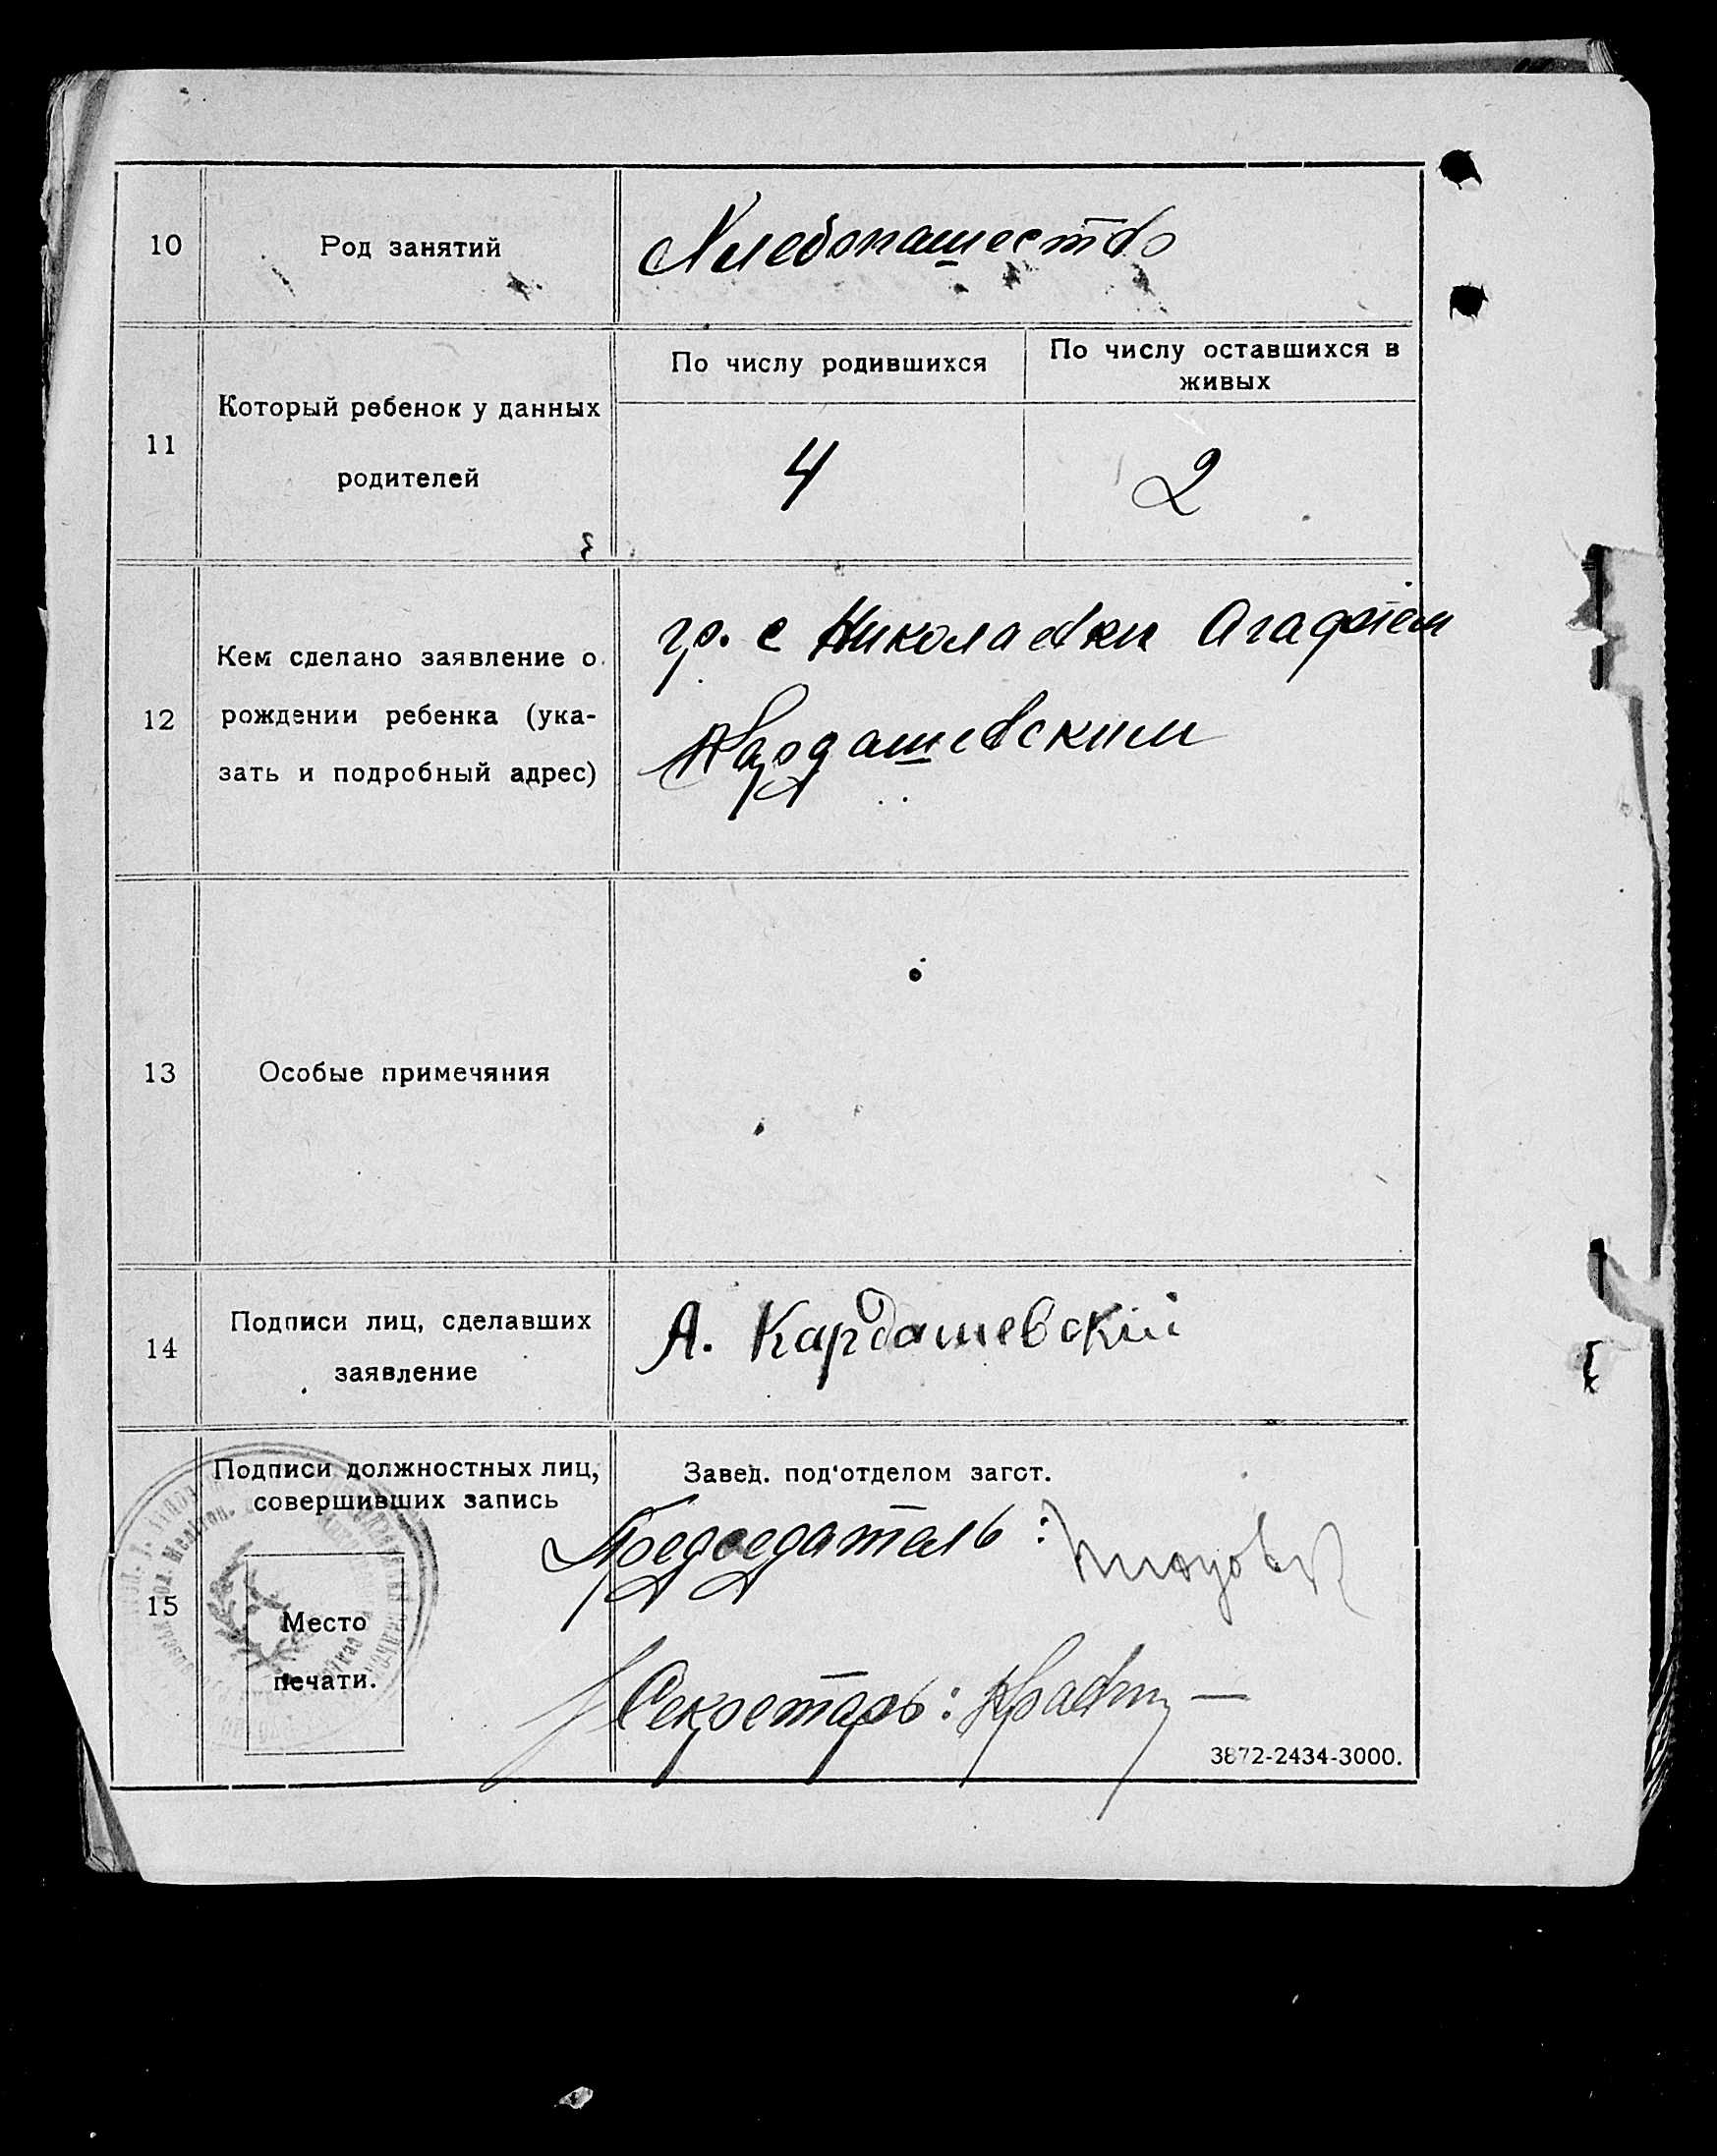 10 Род занятий Хлебопашество
По числу родившихся По числу оставшихся в
живых
11 Который ребенок у данных
родителей
4 2
12 Кем сделано заявление о
рождении ребенка (ука-
зать и подробный адрес)
гр. с Николаевки Агафiем
Кардашевским
13 Особые примечяния
14 Подписи лиц, сделавших
заявление
А. Кардашевскiй
15 Подписи должностных лиц,
совершивших запись
Завед. под'отделом загст.
Председатель:
Место
печати.
Секретарь:
3872-2434-3000.